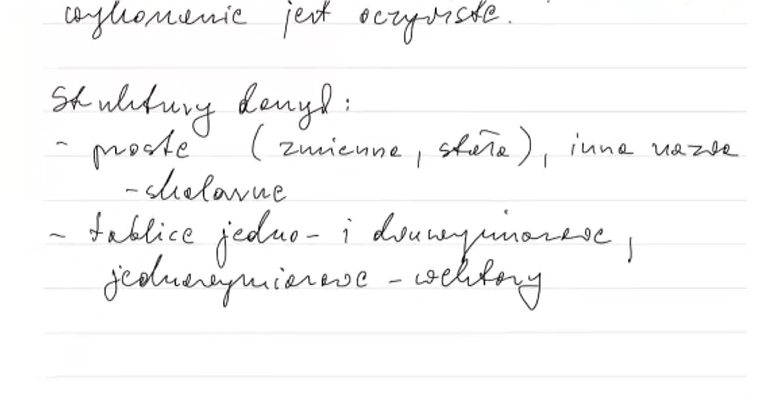 wykonanie jest oczywiste.
Struktury danych:
- proste (zmienne, stałe), inna nazwa
- skalarne
- tablice jedno- i dwuwymiarowe,
jednowymiarowe - wektory